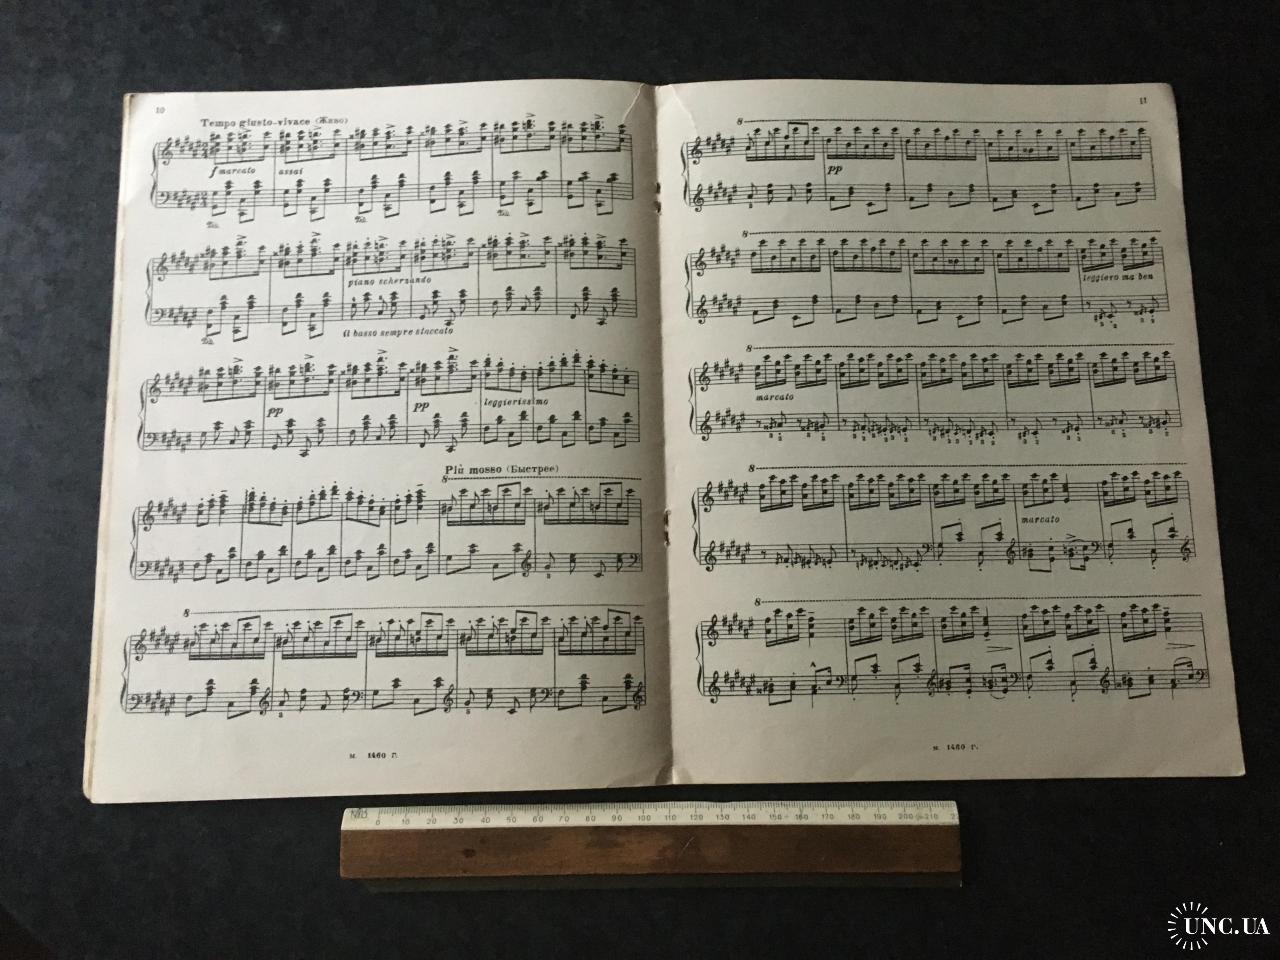 10
Tempo giusto-vivace (Живо)
f marcato assai
piano scherzando
il basso sempre staccato
pp
pp
leggierissimo
Più mosso (Быстрее)
8
8
м. 1460 г.
11
8
pp
8
leggiero ma ben
8
marcato
8
marcato
8
м. 1460 г.
0 10 20 30 40 50 60 70 80 90 100 110 120 130 140 150 160 170 180 190 200 210
UNC.UA